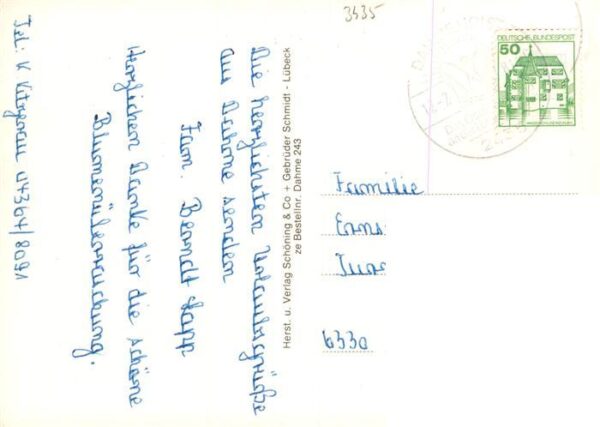 3435
Die herzlichsten Urlaubsgrüße
aus Dahme senden
Fam. Berndt Lapp
Herzlichen Danke für die schöne
Blumenüberraschung.
Tel: 04364/8091
Herst. u. Verlag Schöning & Co + Gebrüder Schmidt - Lübeck
ze Bestellnr. Dahme 243
DEUTSCHE BUNDESPOST
50
Familie
Erns
6330